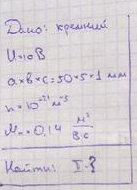 Дано: кремний
U=10В
a×b×c=50×5×1 мм
n=10²¹ м⁻³
Mₙ=0,14 м²/В·с
Найти: I-?